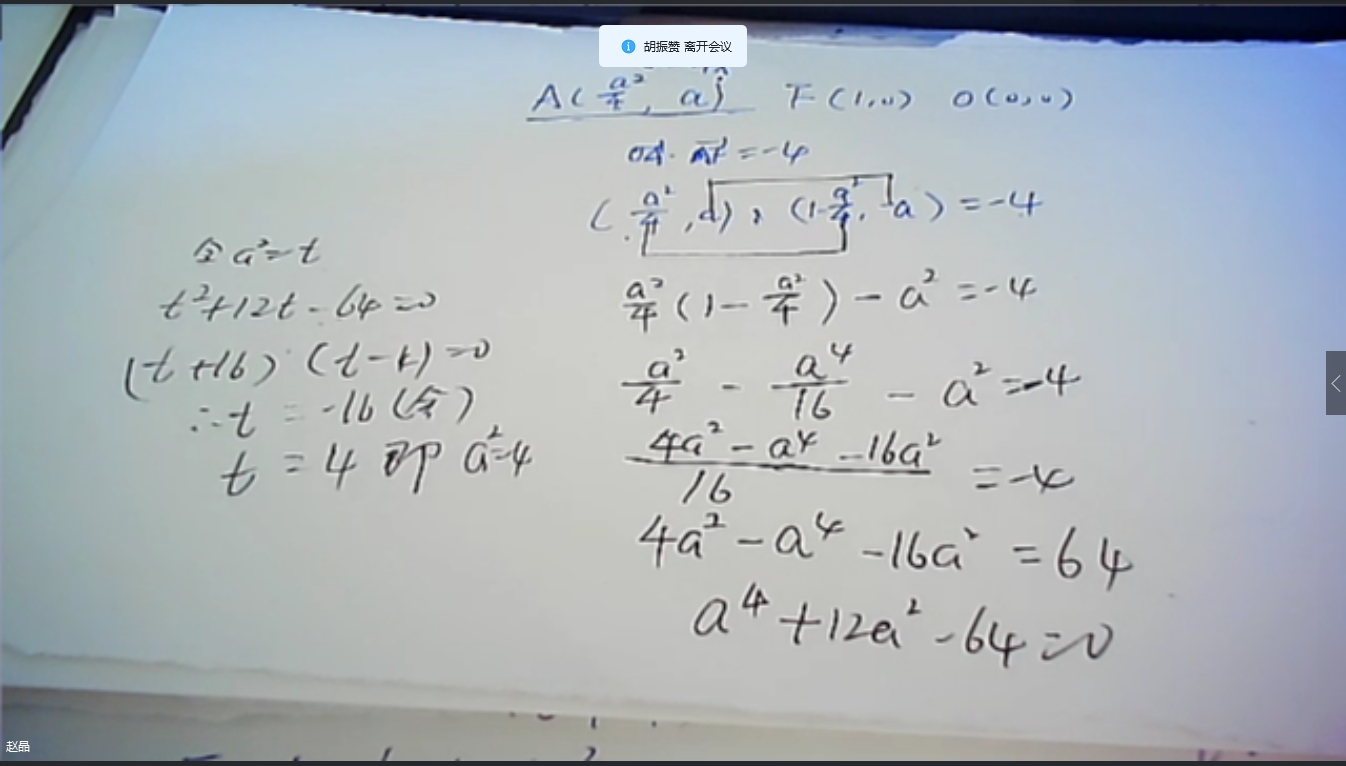 胡振赞 离开会议
A(a²/4, a) F(1,0) O(0,0)
OA·AF=-4
(a²/4, a), (1-a²/4, -a)=-4
a²/4(1-a²/4)-a²=-4
a²/4 - a⁴/16 - a²=-4
4a²-a⁴-16a²/16 =-4
4a²-a⁴-16a²=64
a⁴+12a²-64=0
令a²=t
t²+12t-64=0
(t+16)(t-4)=0
∴t=-16(舍)
t=4 即 a²=4
赵晶